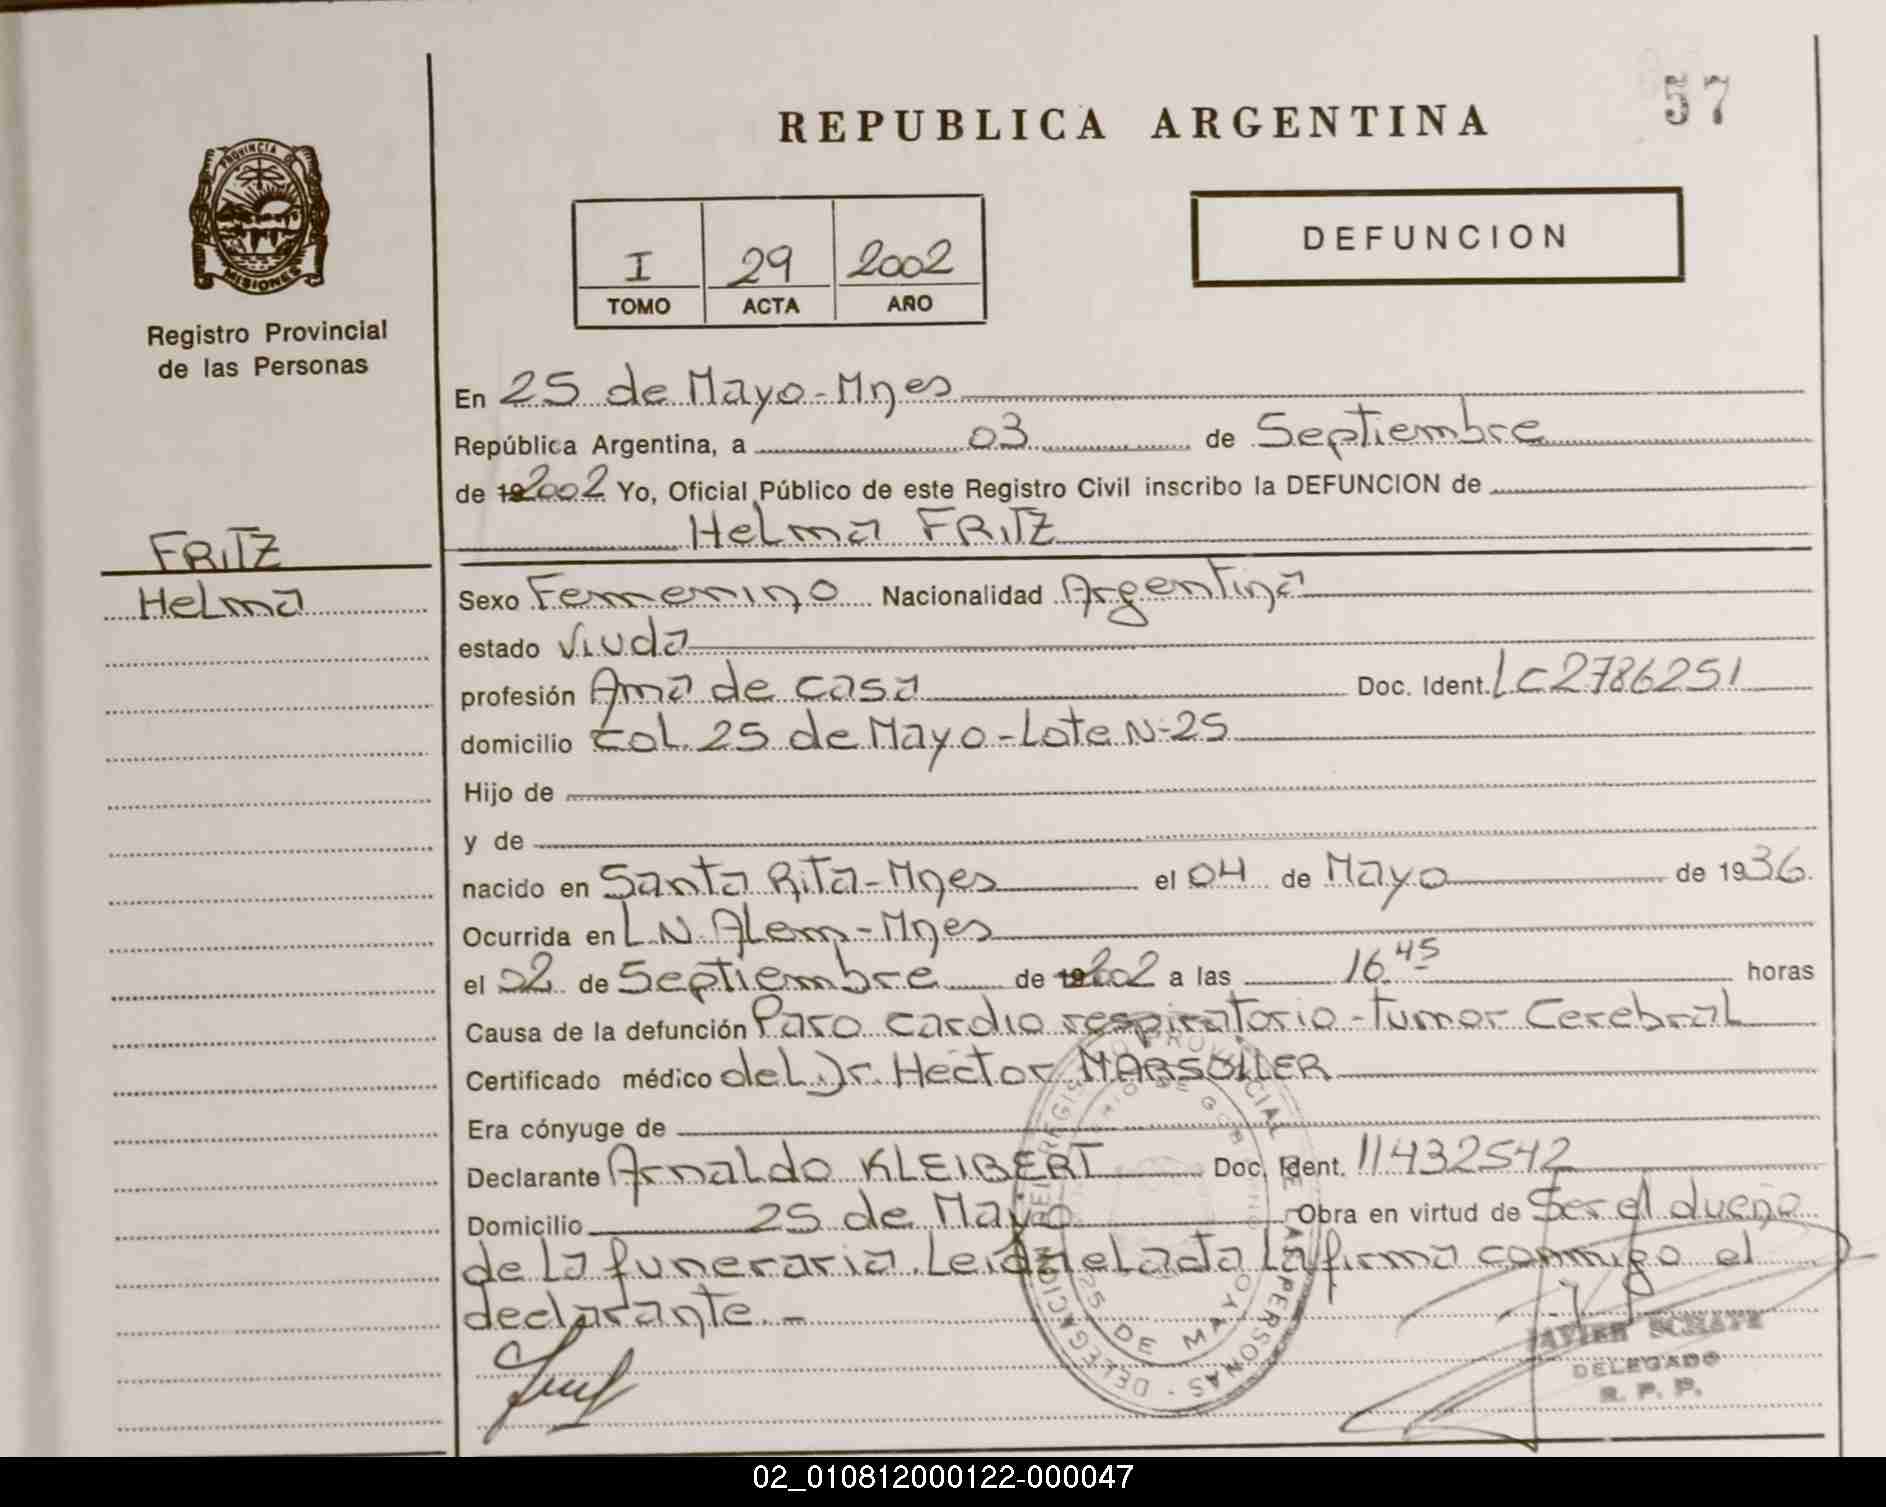 57
REPUBLICA ARGENTINA
PROVINCIA DE
MISIONES
Registro Provincial
de las Personas
DEFUNCION
I 29 2002
TOMO ACTA AÑO
En 25 de Mayo-Mnes
República Argentina, a 03 de Septiembre
de 192002 Yo, Oficial Público de este Registro Civil inscribo la DEFUNCION de
Helma FRITZ
FRITZ
Helma
Sexo Femenino Nacionalidad Argentina
estado Viuda
profesión Ama de casa Doc. Ident. LC2786251
domicilio Col. 25 de Mayo-Lote N-25
Hijo de
y de
nacido en Santa Rita-Mnes el 04 de Mayo de 1936.
Ocurrida en L.N. Alem-Mnes
el 02 de Septiembre de 192002 a las 16.45 horas
Causa de la defunción Paro cardio respiratorio-tumor Cerebral
Certificado médico del Dr. Hector MARSOLLER
Era cónyuge de
Declarante Arnaldo KLEIBERT Doc. Ident. 11432542
Domicilio 25 de Mayo Obra en virtud de Ser el dueño
de la funeraria. Leida el acta la firma conmigo el
declarante.-
REGISTRO PROVINCIAL DE LAS PERSONAS - DELEGACION
25 DE MAYO
JAVIER
DELEGADO
R. P. P.
02_010812000122-000047